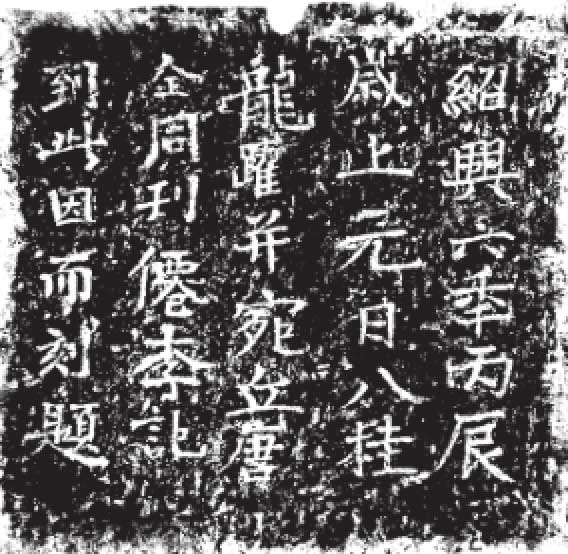 紹興六季丙辰
歲上元日八桂
龍躍并宛丘唐
全同刊僊李記
到此因而刻題